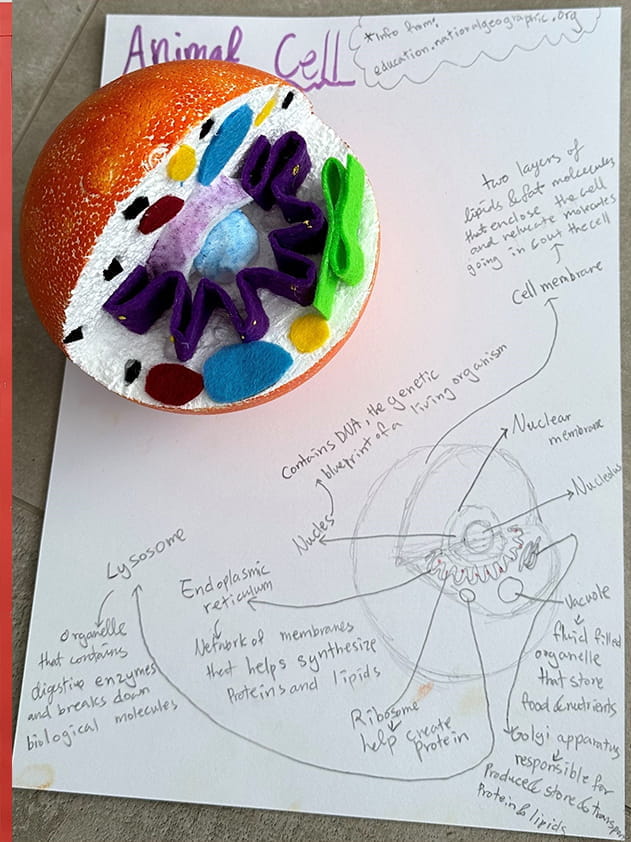 Animal Cell
*Info from:
education.nationalgeographic.org
two layers of
lipids & fat molecules
that enclose the cell
and relucate molecules
going in & out the cell
Cell membrane
Contains DNA, the genetic
blueprint of a living organism
Nuclear
membrane
Nucleolus
Nucles
Lysosome
Organelle
that contains
digestive enzymes
and breaks down
biological molecules
Endoplasmic
reticulum
Network of membranes
that helps synthesize
Proteins and lipids
Ribosome
help create
protein
Vacuole
fluid filled
organelle
that store
food & nutrients
Golgi apparatus
responsible for
Produce & store & transport
Protein & lipids